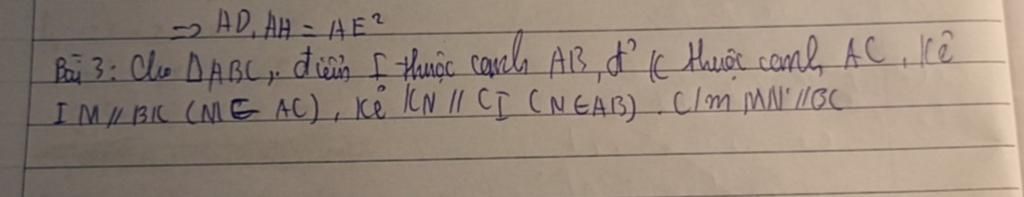 => AD. AH = AE²
Bài 3: Cho ΔABC, điểm I thuộc cạnh AB, đ' K thuộc cạnh AC. Kẻ
IM // BK (M ∈ AC), Kẻ KN // CI (N ∈ AB). C/m MN // BC